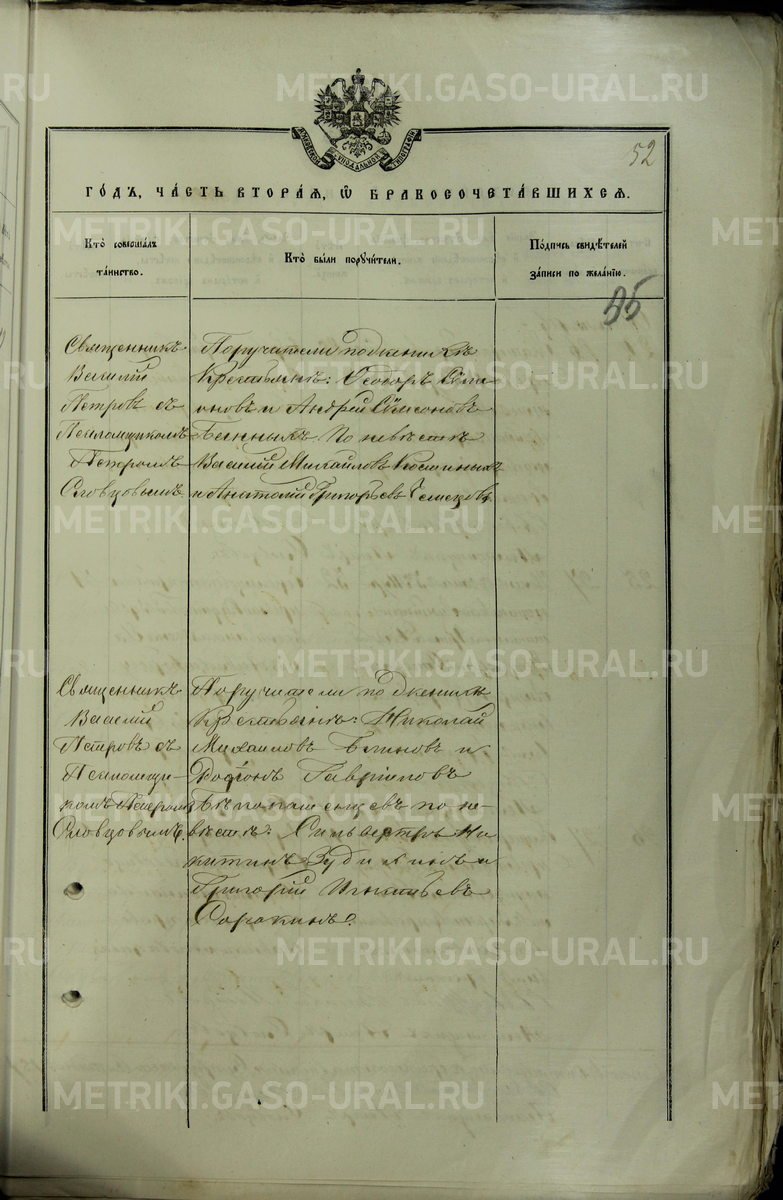 52
Го́дъ, ча́сть втора́я, ѡ҆ бракосочета́вшихсѧ.
Кто̀ соверша́лъ та́инство.
Кто̀ бы́ли пор𙋀чи́тели.
По́дпись свидѣ́телей за́писи по жела́нїю.
Священникъ
Василій
Петровъ съ
Псаломщикомъ
Петромъ
Словцовымъ.
Поручители по женихѣ
Крестьяне: Ѳеодоръ Сѵме
оновъ и Андрей Сѵмеоновъ
По невѣстѣ
Василій Михайловъ Костиныхъ
и Анатолій Григорьевъ
Священникъ
Василій
Петровъ съ
Псаломщи-
комъ Петромъ
Словцовымъ.
Поручители по женихѣ
Крестьяне: Николай
Михайловъ Блиновъ и
Гавріиловъ
по не-
вѣстѣ: Сильвестръ Ни
китинъ Зудихинъ и
Григорій Игнатьевъ
Сорокинъ.
METRIKI.GASO-URAL.RU